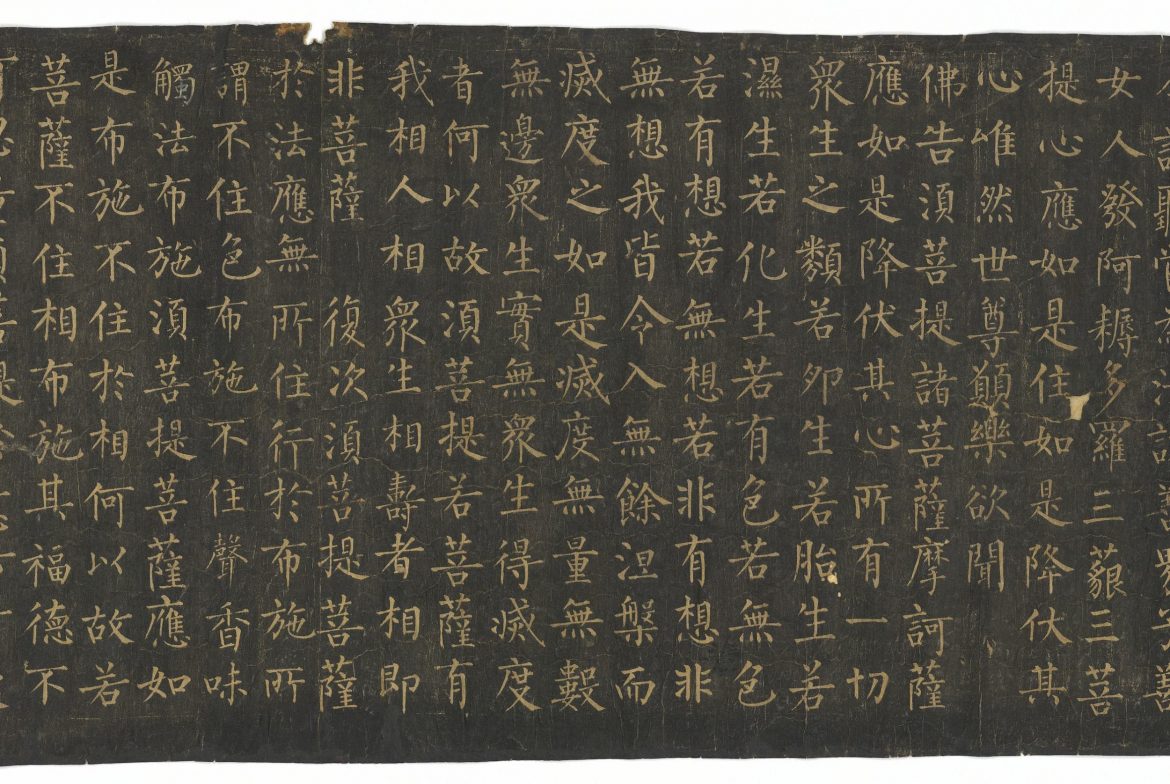 女人發阿耨多羅三藐三菩
提心應如是住如是降伏其
心唯然世尊願樂欲聞
佛告須菩提諸菩薩摩訶薩
應如是降伏其心所有一切
衆生之類若卵生若胎生若
濕生若化生若有色若無色
若有想若無想若非有想非
無想我皆令入無餘涅槃而
滅度之如是滅度無量無數
無邊衆生實無衆生得滅度
者何以故須菩提若菩薩有
我相人相衆生相壽者相即
非菩薩 復次須菩提菩薩
於法應無所住行於布施所
謂不住色布施不住聲香味
觸法布施須菩提菩薩應如
是布施不住於相何以故若
菩薩不住相布施其福德不